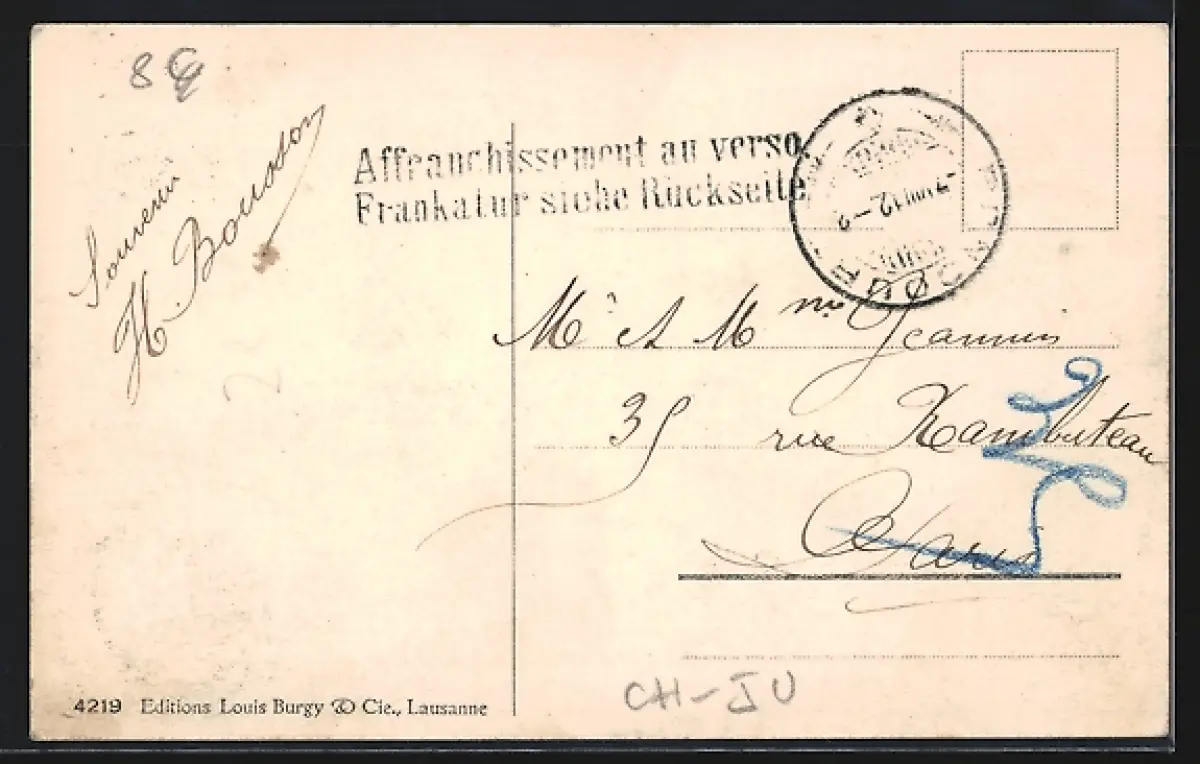 8
Souvenir
H. Bousson
Affranchissement au verso
Frankatur siehe Rückseite
VIII 12 - 2
Mr et Mme Jeannin
35 rue Rambuteau
Paris
CH-JU
4219 Editions Louis Burgy & Cie., Lausanne